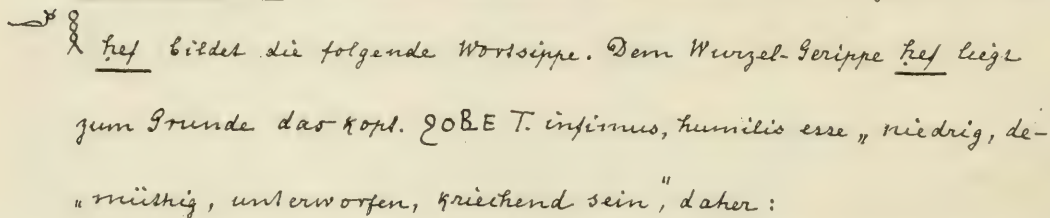 𓆑𓎛 ḥef bildet die folgende Wortsippe. Dem Wurzel-Gerippe ḥef liegt
zum Grunde das kopt. ϩⲟⲃⲉ T. infimus, humilis esse „niedrig, de-
„müthig, unterworfen, kriechend sein", daher: